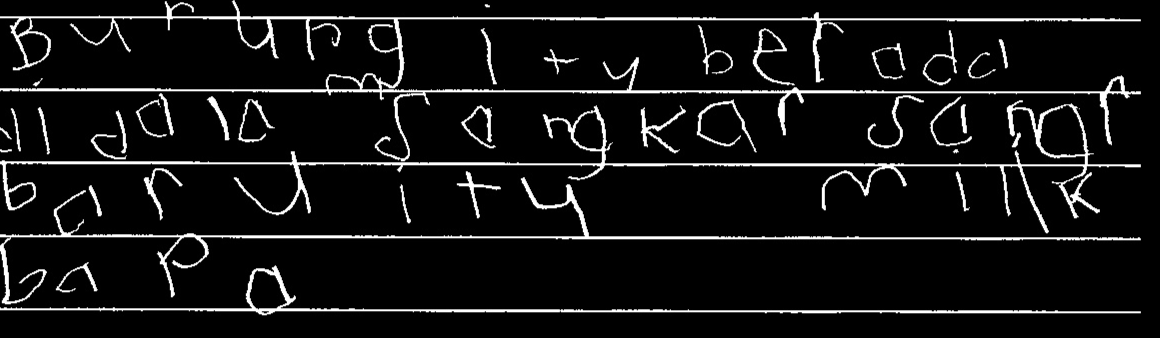 Burung itu berada
di dalam sangkar sangkr
baru itu milik
bapa